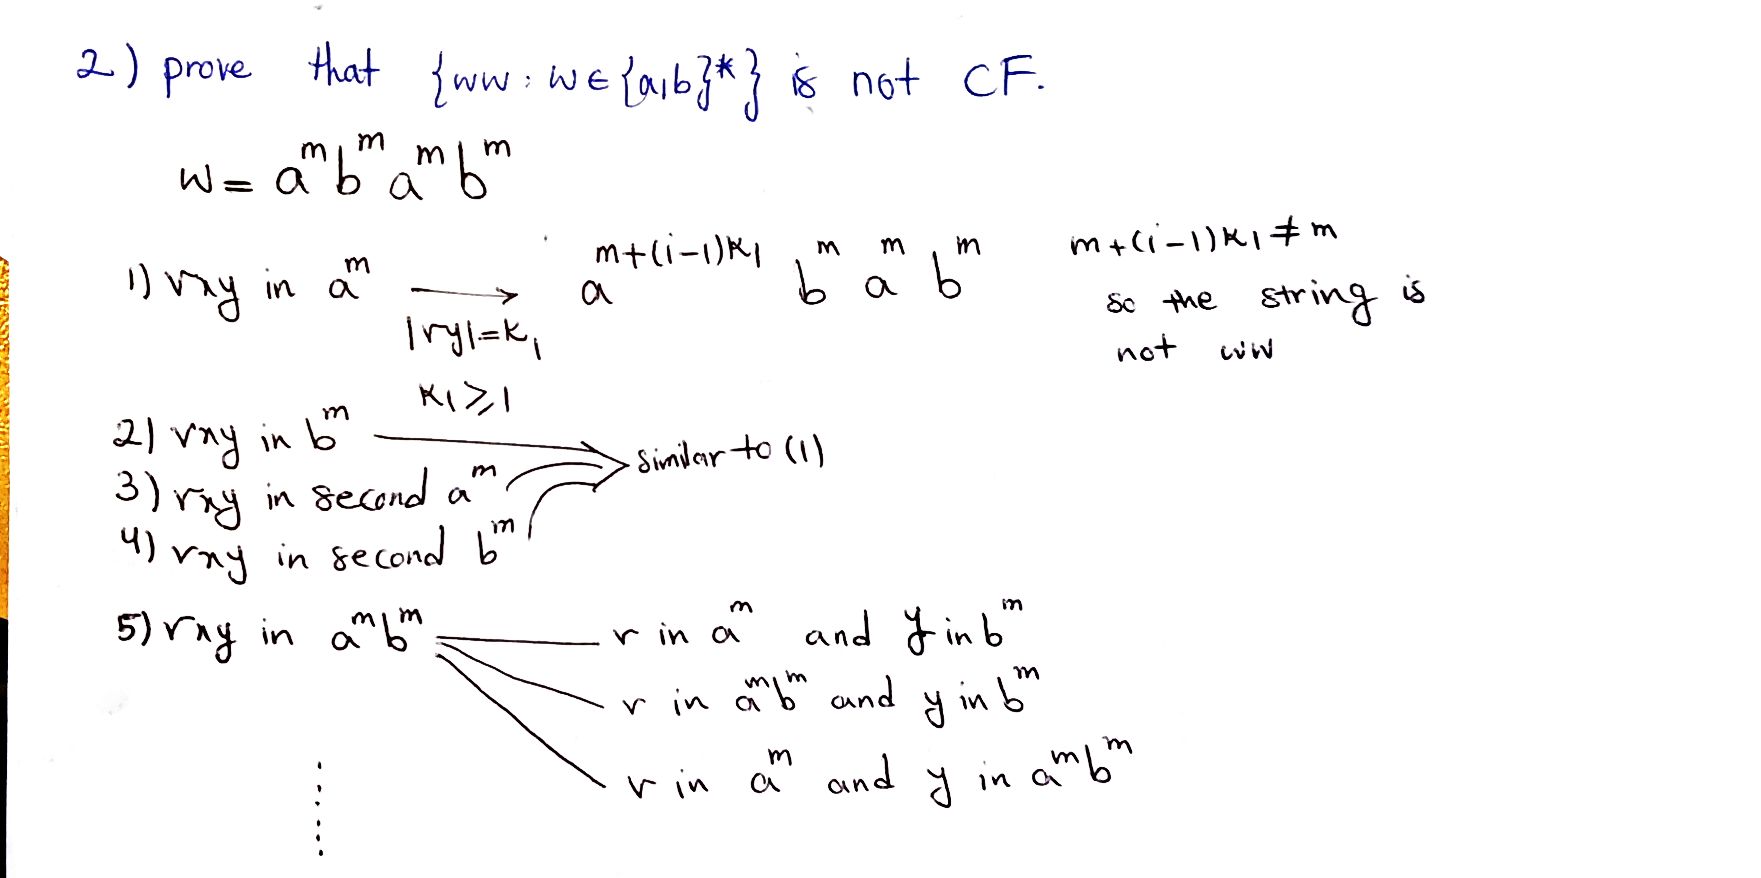 2) prove that {ww : w ∈ {a,b}*} is not CF.
w = a^m b^m a^m b^m
1) vxy in a^m ⟶ a^{m+(i-1)k_1} b^m a^m b^m m+(i-1)k_1 ≠ m
|vy|=k_1 so the string is
k_1 ⩾ 1 not ww
2) vxy in b^m
similar to (1)
3) vxy in second a^m
4) vxy in second b^m
5) vxy in a^m b^m v in a^m and y in b^m
v in a^m b^m and y in b^m
v in a^m and y in a^m b^m